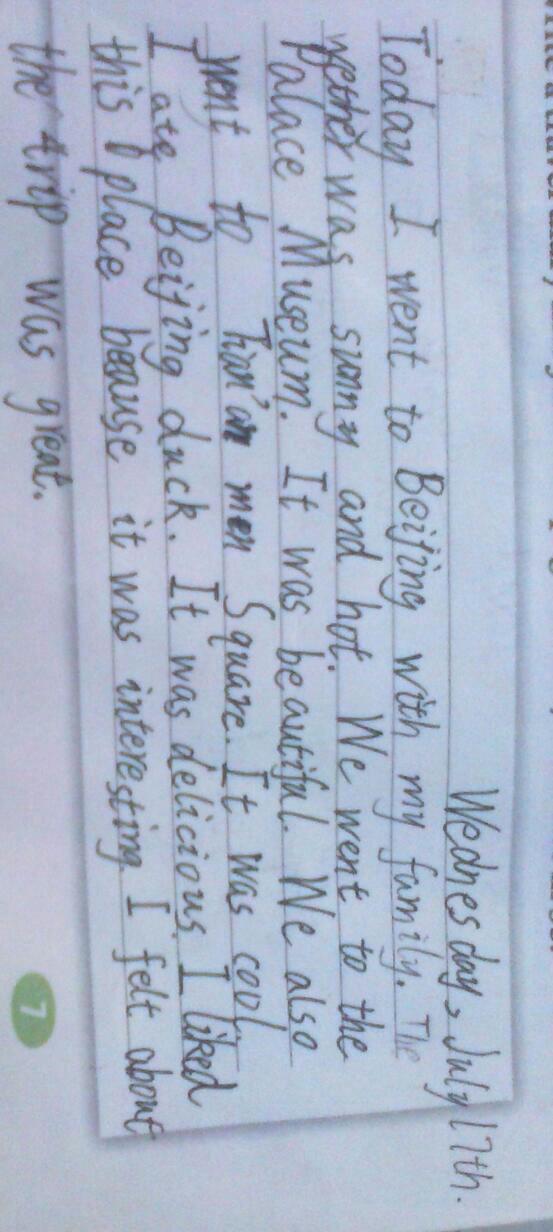 Wednesday, July 17th.
Today I went to Beijing with my family. The
wether was sunny and hot. We went to the
Palace Museum. It was beautiful. We also
went to Tian'an men Square. It was cool.
I ate Beijing duck. It was delicious. I liked
this place beause it was interesting I felt about
the trip was great.
7